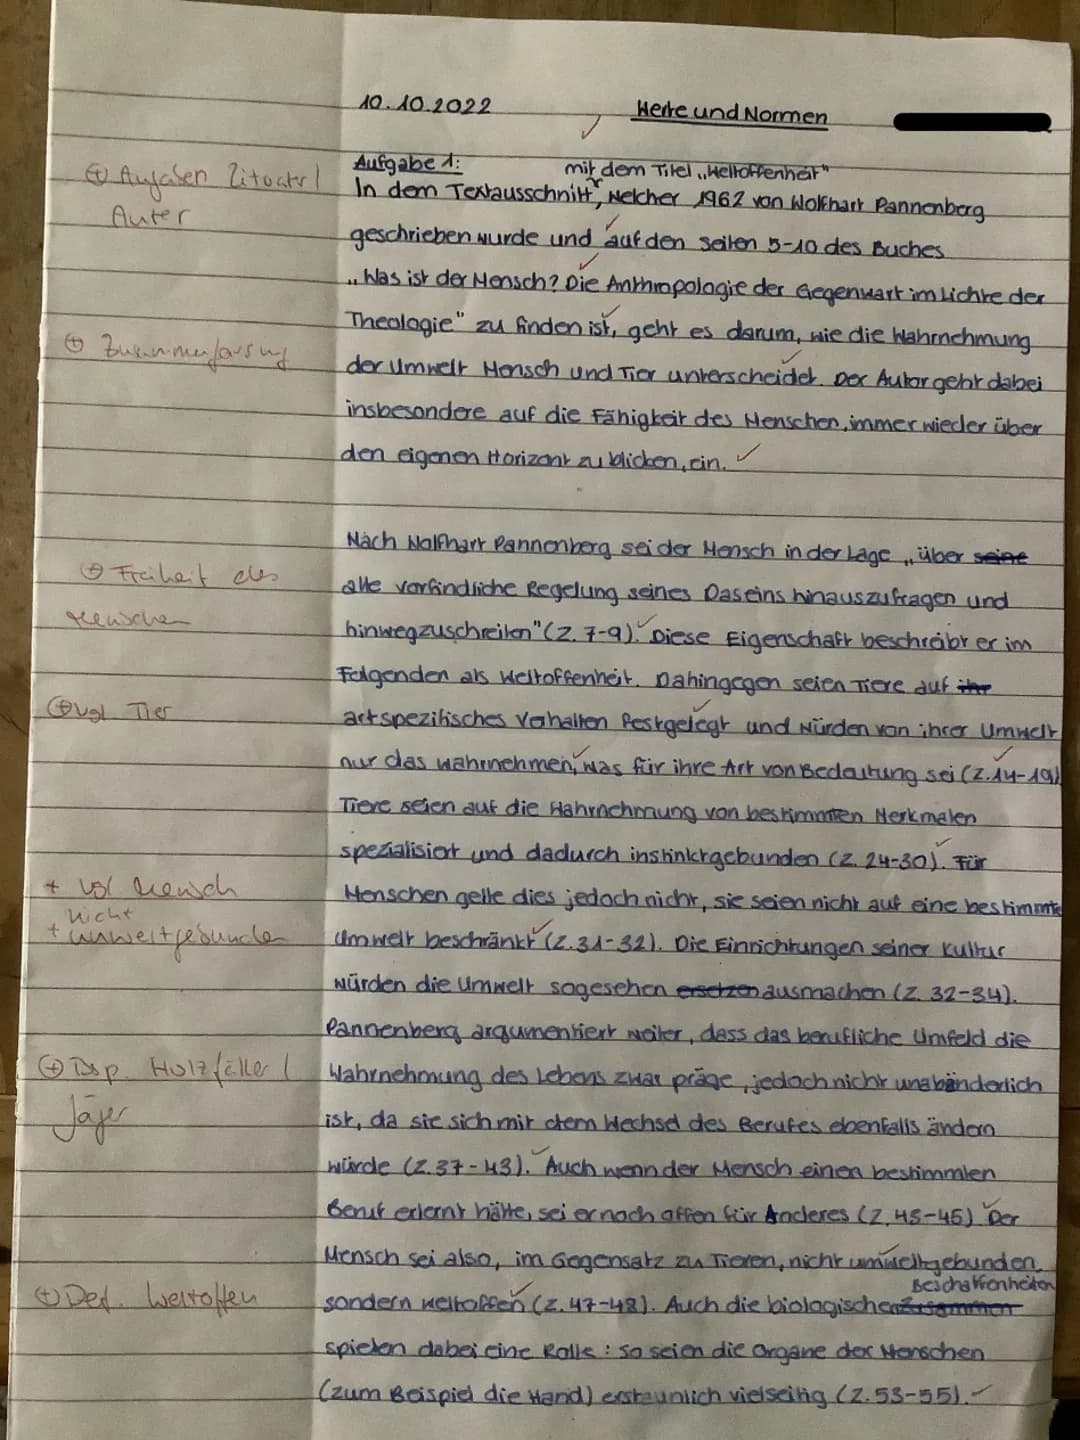 10.10.2022
Werte und Normen
Aufgabe 1:
mit dem Titel „Weltoffenheit"
⊕ Angaben Zitate /
Autor
In dem Textausschnitt, welcher 1962 von Wolfhart Pannenberg
geschrieben wurde und auf den Seiten 5-10 des Buches
„Was ist der Mensch? Die Anthropologie der Gegenwart im Lichte der
Theologie" zu finden ist, geht es darum, wie die Wahrnehmung
⊕ Zusammenfassung
der Umwelt Mensch und Tier unterscheidet. Der Autor geht dabei
insbesondere auf die Fähigkeit des Menschen, immer wieder über
den eigenen Horizont zu blicken, ein.
Nach Wolfhart Pannenberg sei der Mensch in der Lage „über seine
⊕ Freiheit des
Menschen
alle vorfindliche Regelung seines Daseins hinauszufragen und
hinwegzuschreiten" (Z. 7-9). Diese Eigenschaft beschreibt er im
Folgenden als Weltoffenheit. Dahingegen seien Tiere auf ihr
⊕ vgl. Tier
artspezifisches Verhalten festgelegt und würden von ihrer Umwelt
nur das wahrnehmen, was für ihre Art von Bedeutung sei (Z. 14-19)
Tiere seien auf die Wahrnehmung von bestimmten Merkmalen
spezialisiert und dadurch instinktgebunden (Z. 24-30). Für
+ vgl. Mensch
Menschen gelte dies jedoch nicht, sie seien nicht auf eine bestimmte
nicht
+ umweltgebunden
Umwelt beschränkt (Z. 31-32). Die Einrichtungen seiner Kultur
würden die Umwelt sogesehen ersetzen ausmachen (Z. 32-34).
Pannenberg argumentiert weiter, dass das berufliche Umfeld die
⊕ Bsp. Holzfäller /
Jäger
Wahrnehmung des Lebens zwar präge, jedoch nicht unabänderlich
ist, da sie sich mit dem Wechsel des Berufes ebenfalls ändern
würde (Z. 37-43). Auch wenn der Mensch einen bestimmten
Beruf erlernt hätte, sei er noch offen für Anderes (Z. 45-46) Der
Mensch sei also, im Gegensatz zu Tieren, nicht umweltgebunden,
Beschaffenheiten
⊕ Def. Weltoffen
sondern weltoffen (Z. 47-48). Auch die biologischen
spielen dabei eine Rolle: so seien die Organe des Menschen
(zum Beispiel die Hand) erstaunlich vielseitig (Z. 53-55).